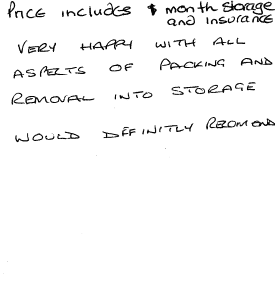 Price includes month storage
and insurance
VERY HAPPY WITH ALL
ASPECTS OF PACKING AND
REMOVAL INTO STORAGE
WOULD DEFINITLY RECOMEND